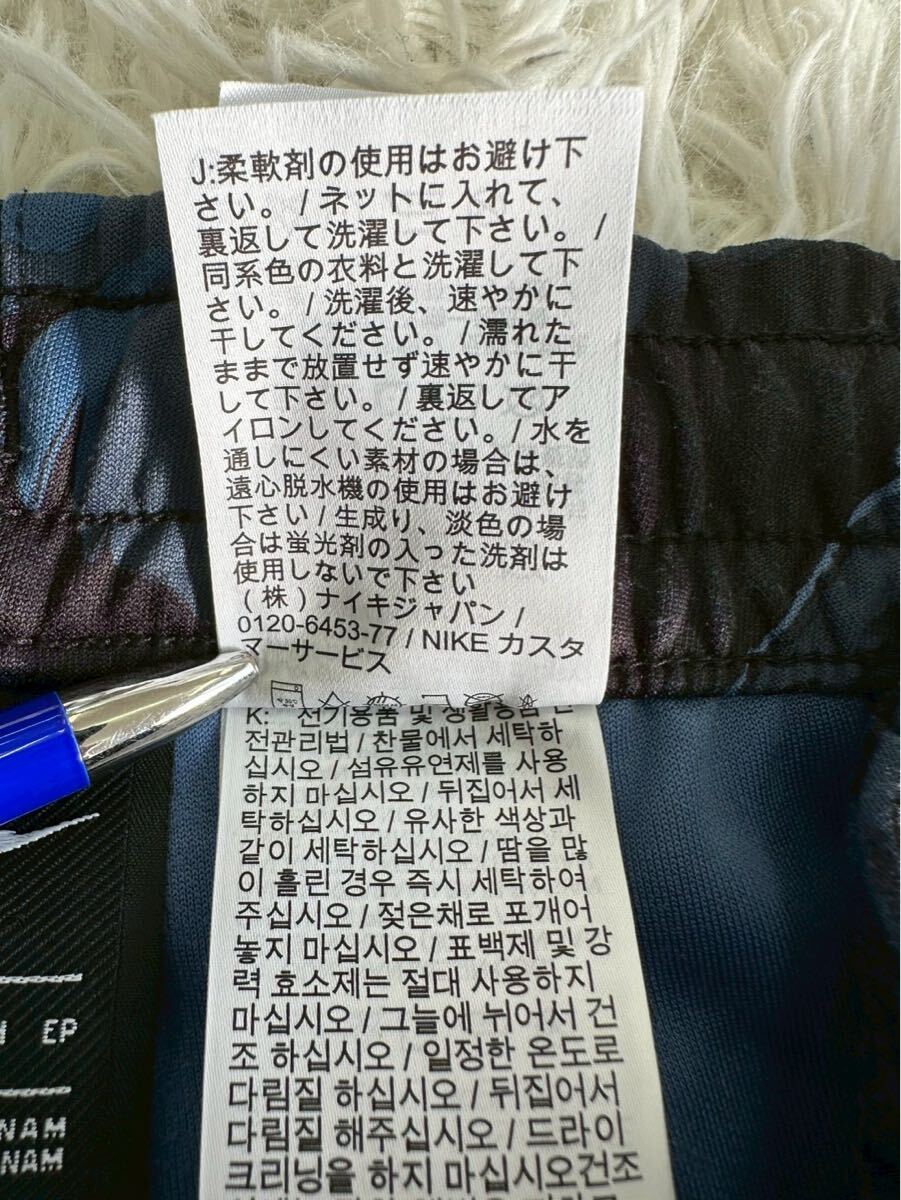 J:柔軟剤の使用はお避け下
さい。 / ネットに入れて、
裏返して洗濯して下さい。 /
同系色の衣料と洗濯して下
さい。 / 洗濯後、速やかに
干してください。 / 濡れた
ままで放置せず速やかに干
して下さい。 / 裏返してア
イロンしてください。 / 水を
通しにくい素材の場合は、
遠心脱水機の使用はお避け
下さい / 生成り、淡色の場
合は蛍光剤の入った洗剤は
使用しないで下さい
(株) ナイキジャパン /
0120-6453-77 / NIKE カスタ
マーサービス
K: 전기용품 및 생활용품
전관리법 / 찬물에서 세탁하
십시오 / 섬유유연제를 사용
하지 마십시오 / 뒤집어서 세
탁하십시오 / 유사한 색상과
같이 세탁하십시오 / 땀을 많
이 흘린 경우 즉시 세탁하여
주십시오 / 젖은채로 포개어
놓지 마십시오 / 표백제 및 강
력 효소제는 절대 사용하지
마십시오 / 그늘에 뉘어서 건
조 하십시오 / 일정한 온도로
다림질 하십시오 / 뒤집어서
다림질 해주십시오 / 드라이
크리닝을 하지 마십시오건조
EP
NAM
NAM